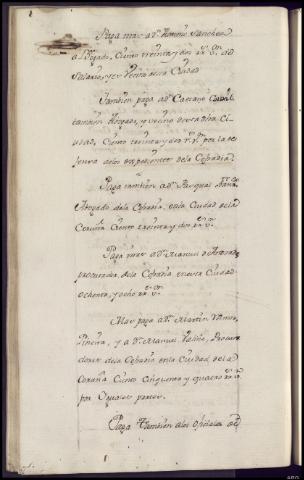 Paga mas a Dn. Antonio Sanchez
Abogado, Ciento treinta y dos rs. vn. de
Salario, y es vecino desta Ciudad
Tambien paga a Dn. Caetano
tambien Abogado, y vecino de esta dha. Ciu
dad, Ciento treinta y dos rs. vn. por la de
fensa de los expedientes de la Cofradia.
Paga tambien a Dn. Pasqual
Abogado de la Cofradia, en la Ciudad de la
Coruña Ciento treinta y dos rs. vn.
Paga mas a Dn. Manuel de Andrade
procurador, de la Cofradia en esta Ciudad
ochenta, y ocho rs. vn.
Mas paga a Dn. Martin
Piñeira, y a Dn. Manuel Patiño, Procura
dores de la Cofradia en la Ciudad, de la
Coruña Ciento Cinquenta y quatro rs. vn.
por Yguales partes.
Paga Tambien a los Oficiales de